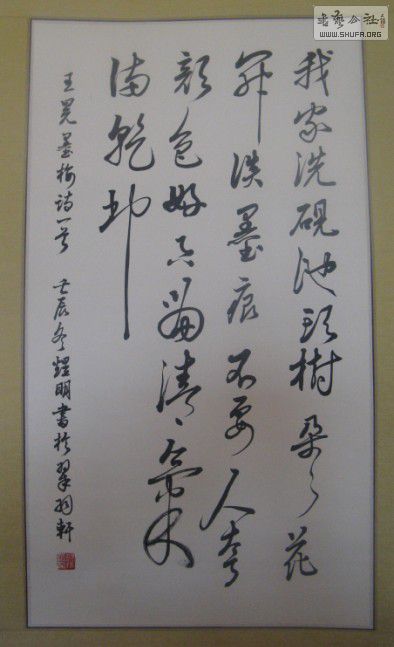 書藝公社
WWW.SHUFA.ORG
我家洗硯池頭樹朵々花
開淡墨痕不要人夸
顏色好只留清氣
滿乾坤
王冕墨梅詩一首 壬辰冬 明書於翠羽軒